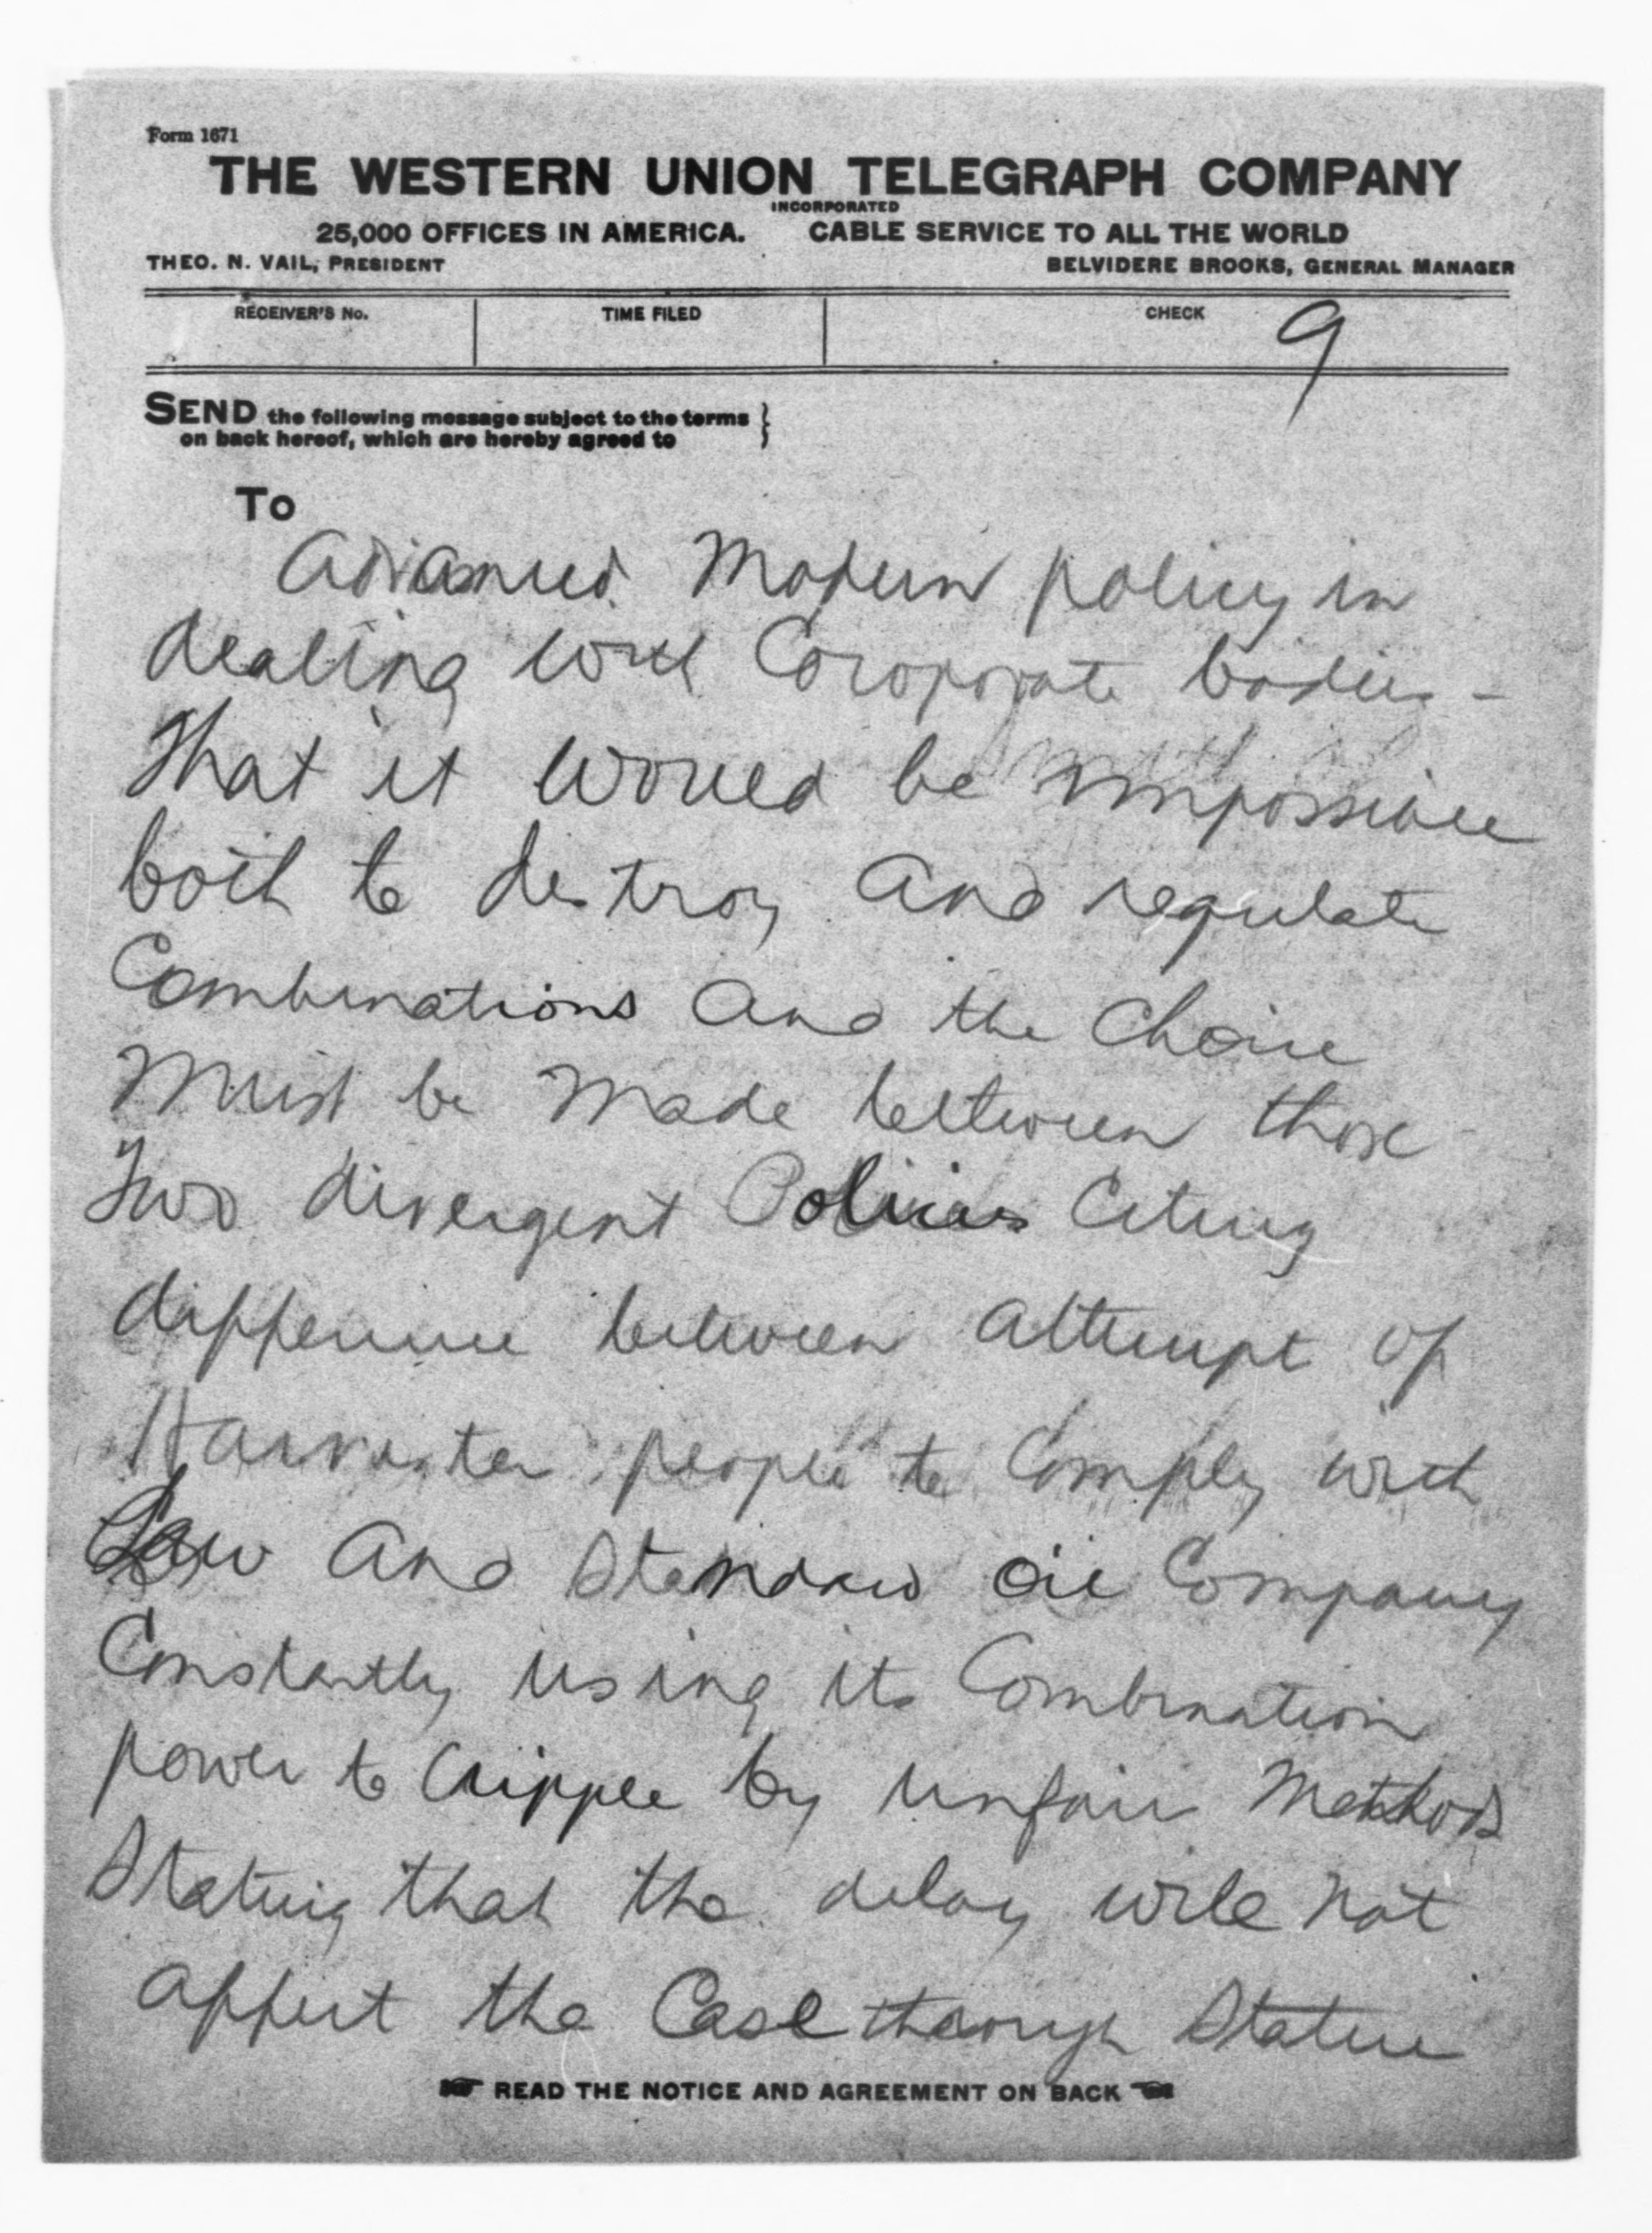 Form 1671
THE WESTERN UNION TELEGRAPH COMPANY
INCORPORATED
25,000 OFFICES IN AMERICA. CABLE SERVICE TO ALL THE WORLD
THEO. N. VAIL, PRESIDENT BELVIDERE BROOKS, GENERAL MANAGER
RECEIVER'S No. TIME FILED CHECK 9
SEND the following message subject to the terms
on back hereof, which are hereby agreed to
To
advanced Modern policy in
dealing with Coroporate bodies -
That it would be impossible
both to destroy and regulate
Combinations and the Choice
Must be Made between those
Two divergent Policies Citing
difference between attempt of
Harvester people to Comply with
Law and Standard Oil Company
Constantly using its Combination
power to Cripple by unfair Methods
Stating that the delay will not
affect the Case through Statue
READ THE NOTICE AND AGREEMENT ON BACK